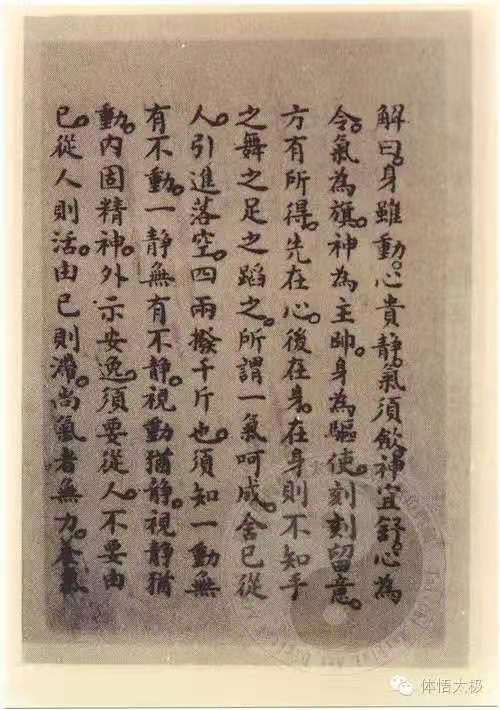 解曰。身雖動。心貴靜。氣須歛。神宜舒。心為
令。氣為旗。神為主帥。身為驅使。刻刻留意。
方有所得。先在心。後在身。在身則不知手
之舞之足之蹈之。所謂一氣呵成。舍已從
人。引進落空。四兩撥千斤也。須知一動無
有不動。一靜無有不靜。視動猶靜。視靜猶
動。內固精神。外示安逸。須要從人。不要由
已。從人則活。由已則滯。尚氣者無力。養氣
体悟太极